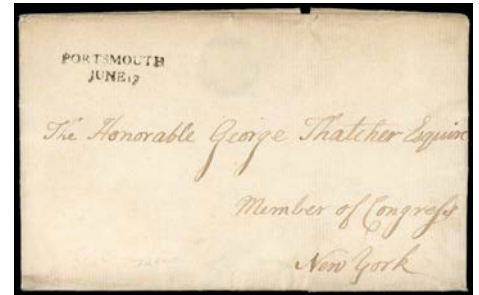 PORTSMOUTH
JUNE 17
The Honorable George Thatcher Esquire
Member of Congress
New York